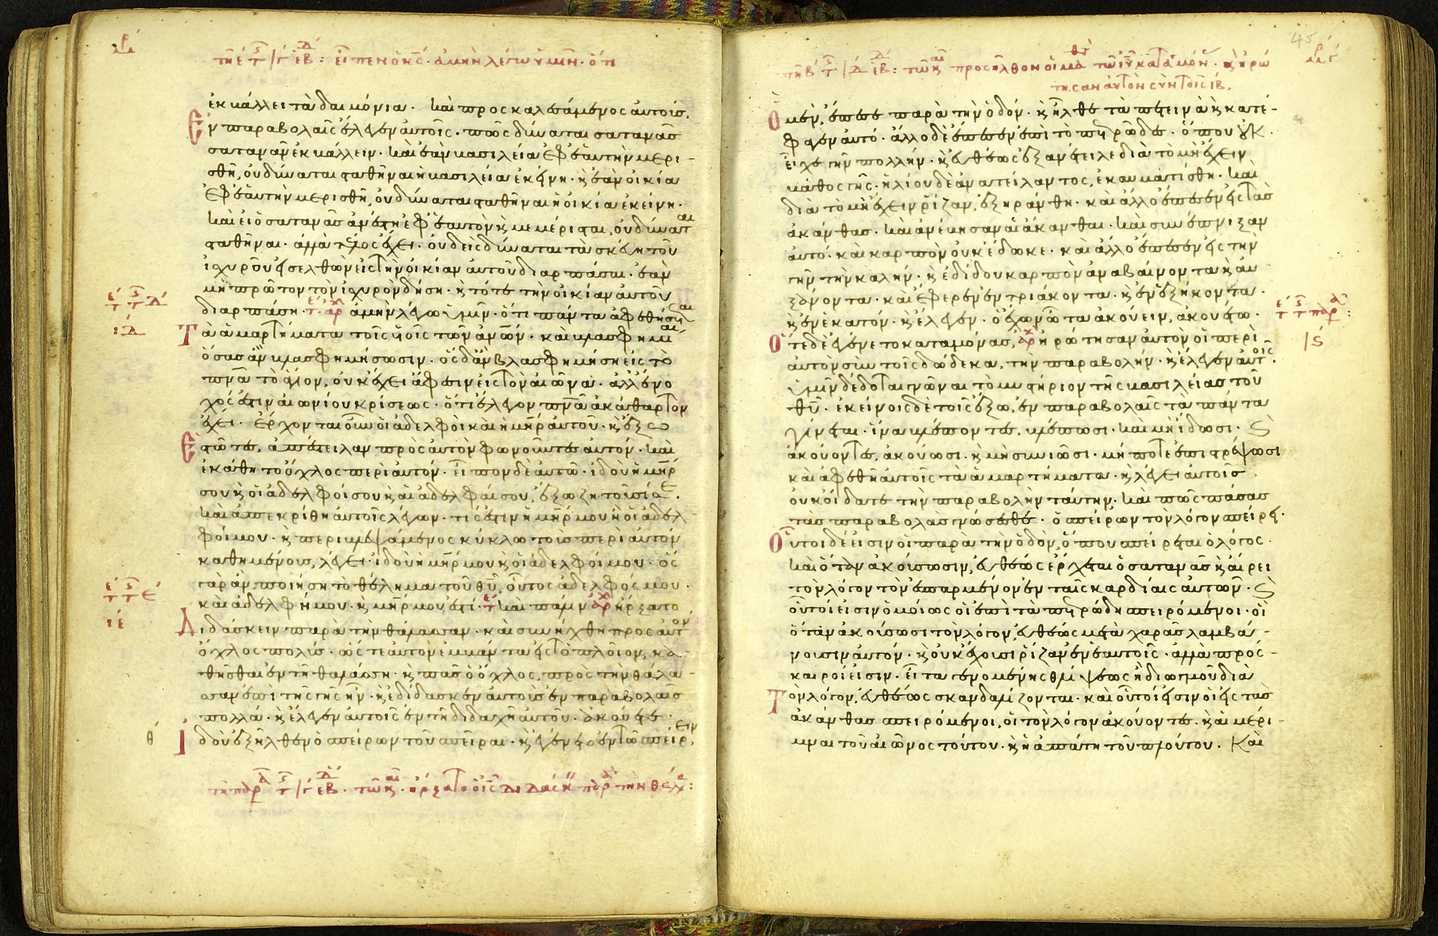 ἐκβάλλει τὰ δαιμόνια · καὶ προσκαλεσάμενος αὐτοὺς,
ἐν παραβολαῖς ἔλεγεν αὐτοῖς · πῶς δύναται σατανᾶς
σατανᾶν ἐκβάλλειν · καὶ ἐὰν βασιλεία ἐφ' ἑαυτὴν μερι-
σθῆ, οὐ δύναται σταθῆναι ἡ βασιλεία ἐκείνη · κ ἐὰν οἰκία
ἐφ' ἑαυτὴν μερισθῆ, οὐ δύναται σταθῆναι ἡ οἰκία ἐκείνη ·
καὶ εἰ ὁ σατανᾶς ἀνέστη ἐφ' ἑαυτὸν κ μεμέρισται, οὐ δύναται
σταθῆναι · ἀλλὰ τέλος ἔχει · οὐδεὶς δύναται τὰ σκεύη τοῦ
ἰσχυροῦ εἰσελθὼν εἰς τὴν οἰκίαν αὐτοῦ διαρπάσαι · ἐὰν
μὴ πρῶτον τὸν ἰσχυρὸν δήση · κ τότε τὴν οἰκίαν αὐτοῦ
διαρπάση · ἀμὴν λέγω ὑμῖν · ὅτι πάντα ἀφεθήσεται
τὰ ἁμαρτήματα τοῖς υἱοῖς τῶν ἀνων · καὶ βλασφημίαι
ὅσας ἂν βλασφημήσωσιν · ὃς δ' ἂν βλασφημήση εἰς τὸ
πνα τὸ ἅγιον, οὐκ ἔχει ἄφεσιν εἰς τὸν αἰῶνα · ἀλλ' ἔνο
χός ἐστιν αἰωνίου κρίσεως · ὅτι ἔλεγον πνα ἀκάθαρτον
ἔχει · ἔρχονται οὖν οἱ ἀδελφοὶ καὶ ἡ μηρ αὐτοῦ · κ ἔξω
ἑστῶτες, ἀπέστειλαν πρὸς αὐτὸν φωνοῦντες αὐτόν · καὶ
ἐκάθητο ὄχλος περὶ αὐτόν · εἶπον δὲ αὐτῶ · ἰδοὺ ἡ μηρ
σου κ οἱ ἀδελφοί σου κ αἱ ἀδελφαί σου, ἔξω ζητοῦσί σε ·
καὶ ἀπεκρίθη αὐτοῖς λέγων · τίς ἐστιν ἡ μηρ μου ἢ οἱ ἀδελ-
φοί μου · κ περιβλεψάμενος κύκλω τοὺς περὶ αὐτὸν
καθημένους, λέγει · ἰδοὺ ἡ μηρ μου κ οἱ ἀδελφοί μου · ὃς
γὰρ ἂν ποιήση τὸ θέλημα τοῦ θυ, οὗτος ἀδελφός μου ·
καὶ ἀδελφή μου · κ μηρ μου ἐστί · καὶ πάλιν ἤρξατο
διδάσκειν παρὰ τὴν θάλασσαν · καὶ συνήχθη πρὸς αὐτὸν
ὄχλος πολύς · ὥστε αὐτὸν ἐμβάντα εἰς τὸ πλοῖον, κα-
θῆσθαι ἐν τῆ θαλάσση · κ πᾶς ὁ ὄχλος, πρὸς τὴν θάλα-
σσαν ἐπὶ τῆς γῆς ἦν · κ ἐδίδασκεν αὐτοὺς ἐν παραβολαῖς
πολλά · κ ἔλεγεν αὐτοῖς ἐν τῆ διδαχῆ αὐτοῦ · ἀκούετε ·
ἰδοὺ ἐξῆλθεν ὁ σπείρων τοῦ σπεῖραι · κ ἐγένετο ἐν τῶ σπείρειν
ὃ μὲν, ἔπεσε παρὰ τὴν ὁδόν · κ ἦλθε τὰ πετεινὰ κ κατέ-
φαγεν αὐτό · ἄλλο δὲ ἔπεσεν ἐπὶ τὸ πετρῶδες · ὅπου οὐκ
εἶχε γῆν πολλήν · κ εὐθέως ἐξανέτειλε διὰ τὸ μὴ ἔχειν
βάθος γῆς · ἡλίου δὲ ἀνατείλαντος, ἐκαυματίσθη · καὶ
διὰ τὸ μὴ ἔχειν ῥίζαν, ἐξηράνθη · καὶ ἄλλο ἔπεσεν εἰς τὰς
ἀκάνθας · καὶ ἀνέβησαν αἱ ἄκανθαι · καὶ συνέπνιξαν
αὐτό · καὶ καρπὸν οὐκ ἔδωκε · καὶ ἄλλο ἔπεσεν εἰς τὴν
γῆν τὴν καλήν · κ ἐδίδου καρπὸν ἀναβαίνοντα κ αὐ-
ξάνοντα · καὶ ἔφερεν ἓν τριάκοντα · κ ἓν ἑξήκοντα ·
κ ἓν ἑκατόν · κ ἔλεγεν · ὁ ἔχων ὦτα ἀκούειν, ἀκουέτω ·
ὅτε δὲ ἐγένετο καταμόνας, ἠρώτησαν αὐτὸν οἱ περὶ
αὐτὸν σὺν τοῖς δώδεκα, τὴν παραβολήν · κ ἔλεγεν αὐτοῖς ·
ὑμῖν δέδοται γνῶναι τὸ μυστήριον τῆς βασιλείας τοῦ
θυ · ἐκείνοις δὲ τοῖς ἔξω, ἐν παραβολαῖς τὰ πάντα
γίνεται · ἵνα βλέποντες, βλέπωσι · καὶ μὴ ἴδωσι · κ
ἀκούοντες, ἀκούωσι · κ μὴ συνιῶσι · μή ποτε ἐπιστρέψωσι
καὶ ἀφεθῆ αὐτοῖς τὰ ἁμαρτήματα · κ λέγει αὐτοῖς ·
οὐκ οἴδατε τὴν παραβολὴν ταύτην · καὶ πῶς πάσας
τὰς παραβολὰς γνώσεσθε · ὁ σπείρων τὸν λόγον σπείρει ·
οὗτοι δέ εἰσιν οἱ παρὰ τὴν ὁδὸν, ὅπου σπείρεται ὁ λόγος ·
καὶ ὅταν ἀκούσωσιν, εὐθέως ἔρχεται ὁ σατανᾶς κ αἴρει
τὸν λόγον τὸν ἐσπαρμένον ἐν ταῖς καρδίαις αὐτῶν · κ
οὗτοί εἰσιν ὁμοίως οἱ ἐπὶ τὰ πετρώδη σπειρόμενοι · οἳ
ὅταν ἀκούσωσι τὸν λόγον, εὐθέως μετὰ χαρᾶς λαμβά-
νουσιν αὐτόν · κ οὐκ ἔχουσι ῥίζαν ἐν ἑαυτοῖς · ἀλλὰ πρόσ-
καιροί εἰσιν · εἶτα γενομένης θλίψεως ἢ διωγμοῦ διὰ
τὸν λόγον, εὐθέως σκανδαλίζονται · καὶ οὗτοί εἰσιν οἱ εἰς τὰς
ἀκάνθας σπειρόμενοι, οἱ τὸν λόγον ἀκούοντες · καὶ μέρι-
μναι τοῦ αἰῶνος τούτου · κ ἡ ἀπάτη τοῦ πλούτου · Καὶ